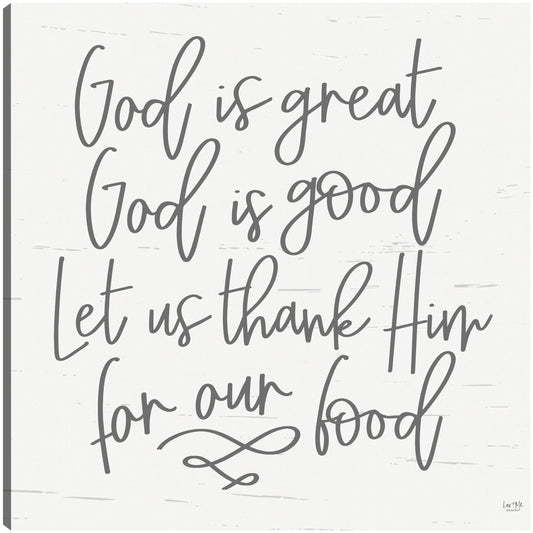 God is great
God is good
Let us thank Him
for our food
Lux + Me